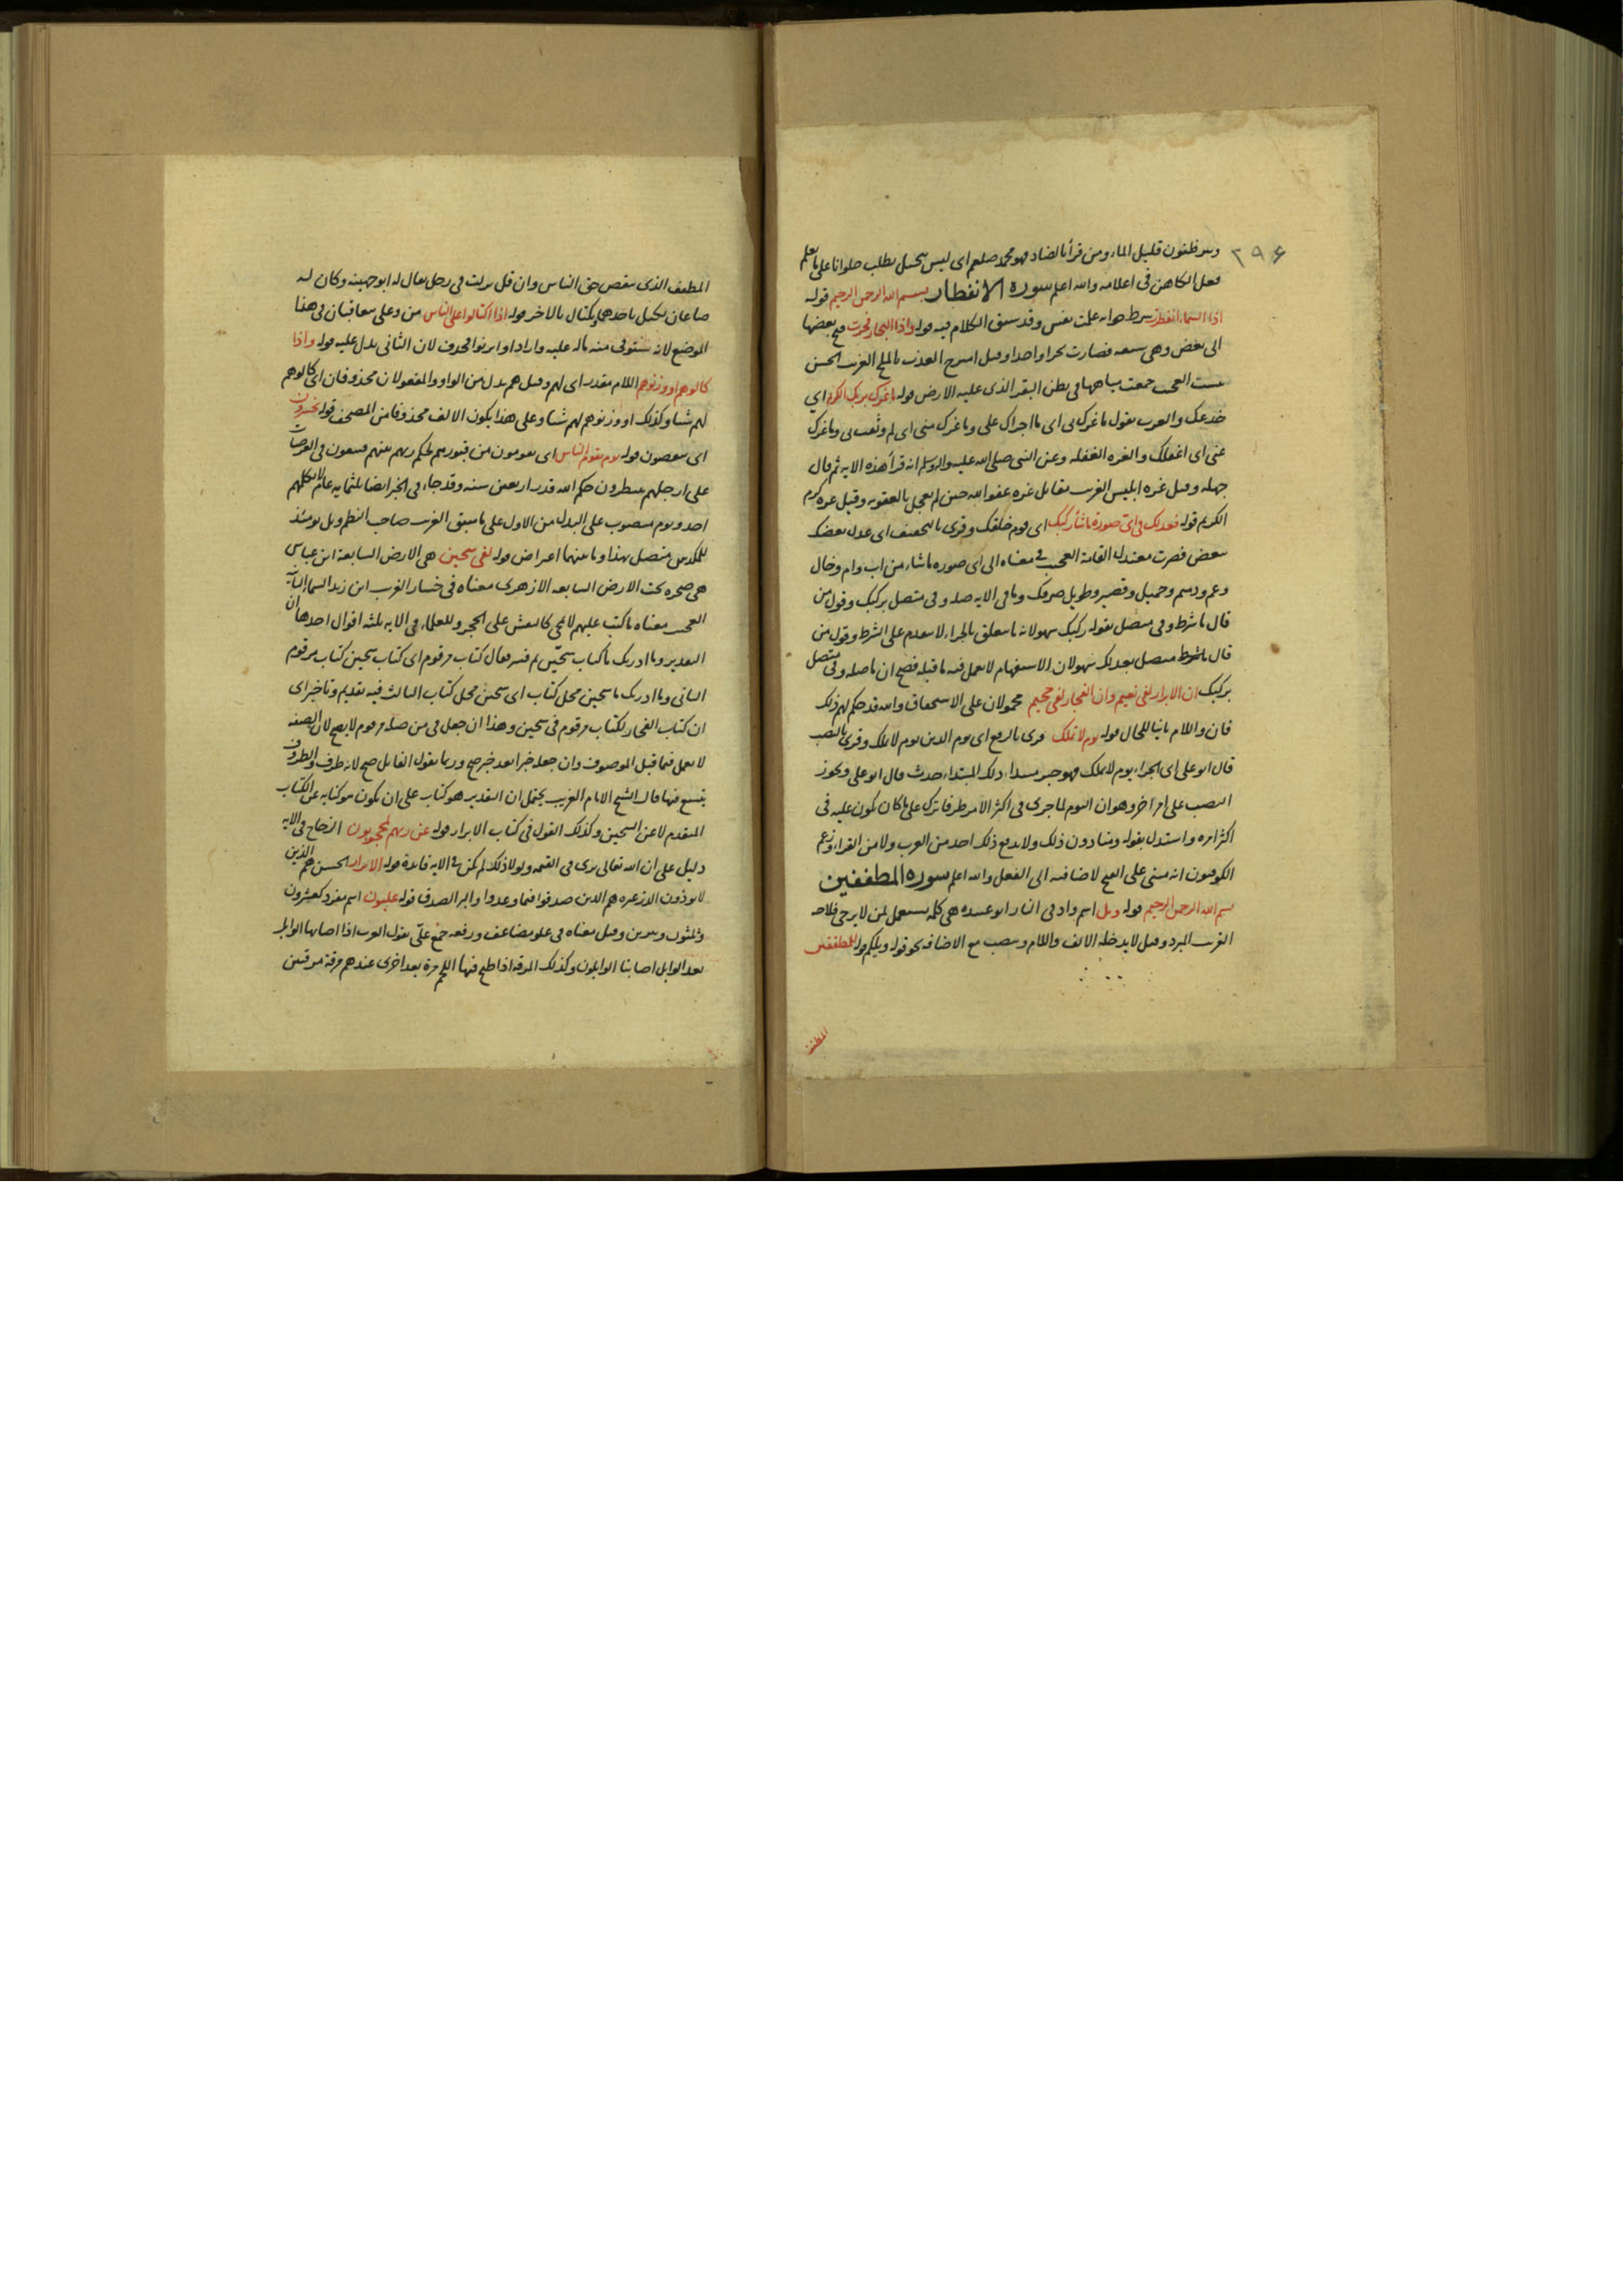 ٢٩۶
وبئر ظنون قليل الماء ومن قرأ بالضاد فهو محمد صلعم اى ليس ببخيل يطلب حلوانا على ما يعلم
فعل الكاهن فى اعلامه والله اعلم سورة الانفطار بسم الله الرحمن الرحيم قوله
اذا السماء انفطرت شرط جوابه علمت نفس وقد سبق الكلام فيه قوله واذا البحار فجرت فتح بعضها
الى بعض وهى سبعة فصارت بحرا واحدا وقيل امتزج العذب بالملح الغريب الحسن
يبست العجيب جمعت مياهها فى بطن البقر الذى عليه الارض قوله ما غرك بربك الكريم اي
خدعك والعرب يقول ما غرك بى اى ما اجراك على وما غرك منى اى لم وثقت بى وما غرك
عنى اى اغفلك والغرة الغفلة وعن النبى صلى الله عليه واله وسلم انه قرأ هذه الاية ثم قال
جهله وقيل غره ابليس الغريب مقاتل غره عفو الله حين لم يعجل بالعقوبة وقيل غره كرم
الكريم قوله فعدلك فى اى صورة ما شاء ركبك اى قوم خلقك وقرى بالتخفيف اى عدل بعضك
ببعض فصرت معتدل القامة العجيب فى معناه الى اى صورة ما شاء من اب وام وخال
وعم ودميم وجميل وقصير وطويل صرفك وما فى الاية صلة وفى متصل بركبك وقول من
قال ما شرط وفى متصل بقوله ركبك سهو لان ما تتعلق بالجزاء لا يتقدم على الشرط وقول من
قال ما شرط متصل بعدلك سهو لان الاستفهام لا يعمل فيه ما قبله فصح ان ما صلة وفى متصل
بركبك ان الابرار لفى نعيم وان الفجار لفى جحيم محمولان على الاستحقاق والله قد حكم لهم ذلك
فان واللام ياتيا للحال قوله يوم لا تملك قرى بالرفع اى يوم الدين يوم لا تملك وقرى بالنصب
قال ابو على اى الجزاء يوم لا تملك فهو خبر مبتدأ، ذلك المبتدأ حدث قال ابو على ويجوز
النصب على امر اخر وهو ان اليوم لما جرى فى اكثر الامر ظرفا ترك على ما كان يكون عليه فى
اكثر امره واستدل بقوله ومنا دون ذلك ولا يدفع ذلك احد من العرب ولا من القراء وزعم
الكوفيون انه مبنى على الفتح لاضافته الى الفعل والله اعلم سورة المطففين
بسم الله الرحمن الرحيم قوله ويل اسم واد فى النار ابو عبيده هى كلمة يستعمل لمن لا يرجى فلاحه
الغريب المبرد وقيل لا يدخله الالف واللام وينصب مع الاضافة نحو قوله ويلكم قوله للمطففين
المطفف
المطفف الذى ينقص حق الناس وان قل نزلت فى رجل يقال له ابو جهينة وكان له
صاعان يكيل باحدهما ويكتال بالاخر قوله اذا اكتالوا على الناس من وعلى يتعاقبان فى هذا
الموضع لانه يستوفى منه ماله عليه واراد او اتزنوا فحذف لان الثانى يدل عليه قوله واذا
كالوهم او وزنوهم اللام مقدر اى لهم وقيل هم بدل من الواو والمفعولان محذوفان اى كالوهم
لهم شيئا وكذلك او وزنوهم لهم شيئا وعلى هذا يكون الالف محذوفا من المصحف قوله يخسرون
اى ينقصون قوله يوم يقوم الناس اى يقومون من قبورهم لحكم ربهم بينهم فيبعثون فى العرصات
على ارجلهم ينتظرون حكم الله قدر اربعين سنة وقد جاء فى الخبر ايضا ثلثماية عام لا يكلمهم
احد ويوم منصوب على البدل من الاول على ما سبق الغريب صاحب النظم ويل يومئذ
للمكذبين متصل بهذا وما بينهما اعتراض قوله لفى سجين هى الارض السابعة ابن عباس
هى صخرة تحت الارض السابعة الازهرى معناه فى خسار الغريب ابن زيد السماء الثانية
العجيب معناه ما كتب عليهم لا يمحى كالنقش على الحجر وللعلماء فى الاية ثلثة اقوال احدها ان
التقدير وما ادريك ما كتاب سجين ثم فسر فقال كتاب مرقوم اى كتاب سجين كتاب مرقوم
الثانى وما ادريك ما سجين محل كتاب اى سجين محل كتاب الثالث فيه تقديم وتاخير اى
ان كتاب الفجار لكتاب مرقوم فى سجين وهذا ان جعل فى من صلة مرقوم لا يصح لان الصفة
لا يعمل فيما قبل الموصوف وان جعله خبرا بعد خبر صح وربما يقول القايل صح لانه ظرف والظروف
يتسع فيها قال الشيخ الامام الغريب يحتمل ان التقدير هو كتاب على ان يكون هو كناية عن الكتاب
المتقدم لا عن السجين وكذلك القول فى كتاب الابرار قوله عن ربهم لمحجوبون الزجاج فى الاية
دليل على ان الله تعالى يرى فى القيمة ولولا ذلك لم يكن فى الاية فايدة قوله الابرار الحسن هم الذين
لا يؤذون الذر غيره هم الذين صدقوا فيما وعدوا والبر الصدق قوله عليون اسم مفرد كعشرون
وثلثون وسرين وقيل معناه فى علو مضاعف ورفعه جمع علّى يقول العرب اذا اصابها الوابل
بعد الوابل اصابتنا الوابلون وكذلك المرقة اذا طبخ فيها اللحم مرة بعد اخرى عندهم مرقة مرقتين